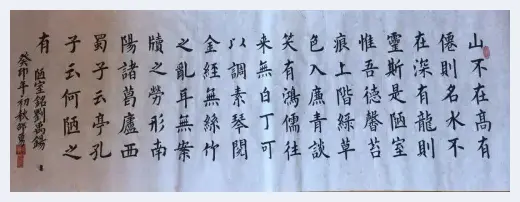 山不在高有
僊則名水不
在深有龍則
靈斯是陋室
惟吾德馨苔
痕上階綠草
色入廉青談
笑有鴻儒往
来無白丁可
以調素琴閱
金經無絲竹
之亂耳無案
牘之勞形南
陽諸葛廬西
蜀子云亭孔
子云何陋之
有
陋室銘劉禹錫
癸卯年初秋邵